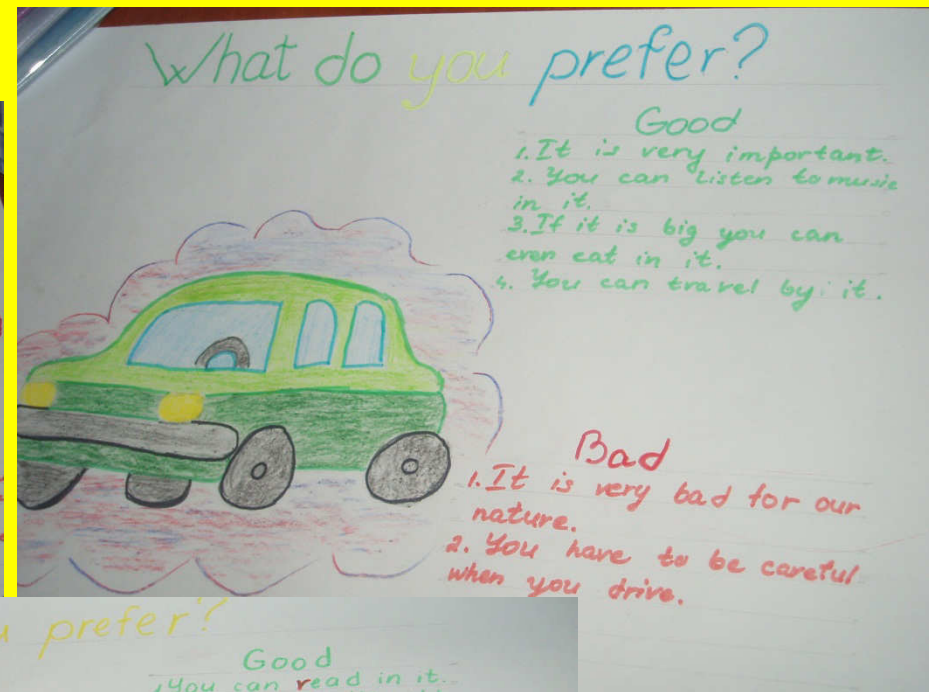 What do you prefer?
Good
1. It is very important.
2. You can Listen to music
in it.
3. If it is big you can
even eat in it.
4. You can travel by it.
Bad
1. It is very bad for our
nature.
2. You have to be careful
when you drive.
prefer?
Good
1 You can read in it.